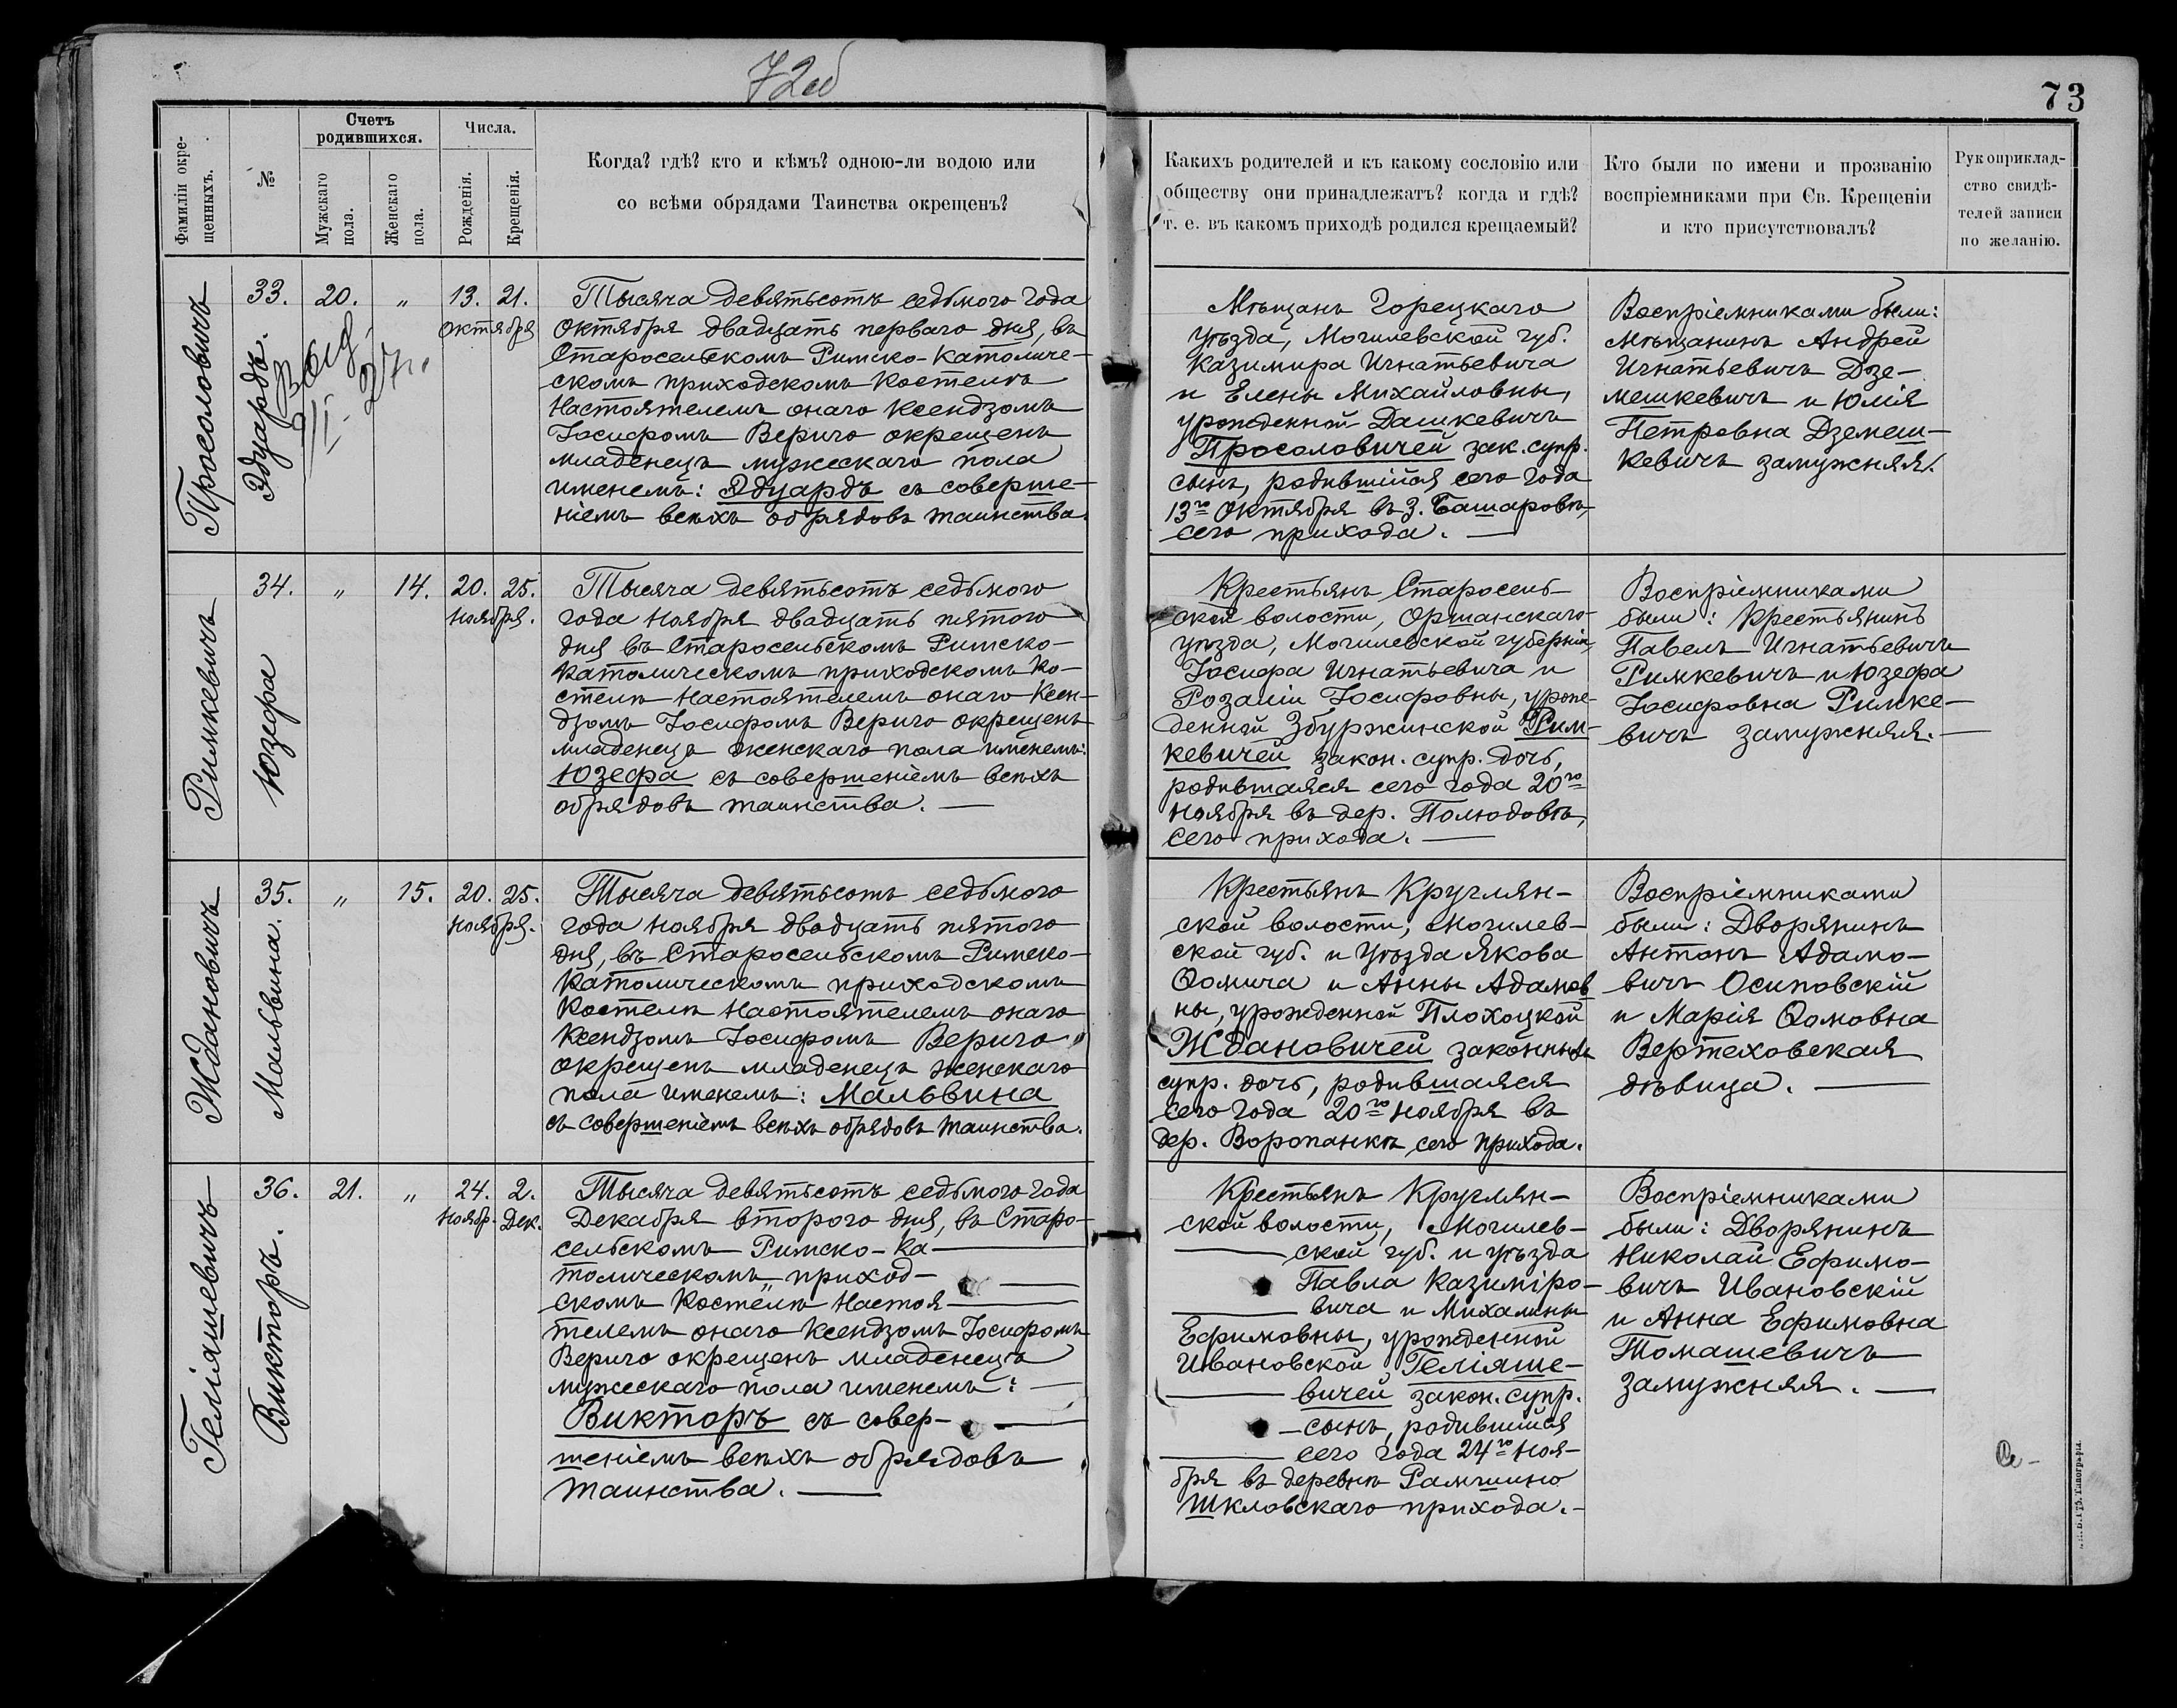 72об
73
Фамиліи окре-
щенныхъ.
№
Счетъ
родившихся.
Мужскаго
пола.
Женскаго
пола.
Числа.
Рожденія.
Крещенія.
Когда? гдѣ? кто и кѣмъ? одною-ли водою или
со всѣми обрядами Таинства окрещенъ?
Какихъ родителей и къ какому сословію или
обществу они принадлежатъ? когда и гдѣ?
т. е. въ какомъ приходѣ родился крещаемый?
Кто были по имени и прозванію
воспріемниками при Св. Крещеніи
и кто присутствовалъ?
Рукоприклад-
ство свидѣ-
телей записи
по желанію.
Просоловичъ
33.
Эдуардъ.
20.
"
13. 21.
Октября
Тысяча девятьсотъ седьмого года
Октября двадцать перваго дня, въ
Старосельскомъ Римско-Католиче-
скомъ приходскомъ Костелѣ
Настоятелемъ онаго Ксендзомъ
Іосифомъ Вериго окрещенъ
младенецъ мужескаго пола
именемъ: Эдуардъ съ соверше-
ніемъ всѣхъ обрядовъ таинства.
Мѣщанъ Горецкаго
уѣзда, Могилевской губ.
Казимира Игнатьевича
и Елены Михайловны,
урожденной Дашкевичъ
Просоловичей зак. супр.
сынъ, родившійся сего года
13го Октября въ з. Башаровѣ,
сего прихода.
Воспріемниками были:
мѣщанинъ Андрей
Игнатьевичъ Дзе-
мешкевичъ и Юлія
Петровна Дземеш-
кевичъ замужняя.
Римкевичъ
34.
Юзефа
"
14.
20. 25.
Ноября.
Тысяча девятьсотъ седьмого
года Ноября двадцать пятого
дня въ Старосельскомъ Римско-
Католическомъ приходскомъ Ко-
стелѣ Настоятелемъ онаго Ксен-
дзомъ Іосифомъ Вериго окрещенъ
младенецъ женскаго пола именемъ:
Юзефа съ совершеніемъ всѣхъ
обрядовъ таинства.
Крестьянъ Старосель-
ской волости, Оршанскаго
уѣзда, Могилевской губерніи,
Іосифа Игнатьевича и
Розаліи Іосифовны, урож-
денной Збуржинской Рим-
кевичей закон. супр. дочь,
родившаяся сего года 20го
Ноября въ дер. Полюдовѣ,
сего прихода.
Воспріемниками
были: Крестьянинъ
Павелъ Игнатьевичъ
Римкевичъ и Юзефа
Іосифовна Римке-
вичъ замужняя.
Ждановичъ
35.
Мальвина.
"
15.
20. 25.
Ноября.
Тысяча девятьсотъ седьмого
года Ноября двадцать пятого
дня, въ Старосельскомъ Римско-
Католическомъ приходскомъ
Костелѣ Настоятелемъ онаго
Ксендзомъ Іосифомъ Вериго
окрещенъ младенецъ женскаго
пола именемъ: Мальвина
съ совершеніемъ всѣхъ обрядовъ таинства.
Крестьянъ Круглян-
ской волости, Могилев-
ской губ. и уѣзда Якова
Ѳомича и Анны Адамов
ны, урожденной Плохоцкой
Ждановичей законныхъ
супр. дочь, родившаяся
сего года 20го Ноября въ
дер. Воропанкѣ сего прихода.
Воспріемниками
были: Дворянинъ
Антонъ Адамо-
вичъ Осиповскій
и Марія Ѳомовна
Вертеховская
дѣвица.
Геліяшевичъ
36.
Викторъ.
21.
"
24. 2.
Ноябр. Дек.
Тысяча девятьсотъ седьмого года
Декабря второго дня, въ Старо-
сельскомъ Римско-Ка-
толическомъ приход-
скомъ Костелѣ Настоя-
телемъ онаго Ксендзомъ Іосифомъ
Вериго окрещенъ младенецъ
мужескаго пола именемъ:
Викторъ съ совер-
шеніемъ всѣхъ обрядовъ
таинства.
Крестьянъ Круглян-
ской волости, Могилев-
ской губ. и уѣзда
Павла Казиміро-
вича и Михалины
Ефимовны, урожденной
Ивановской Геліяше-
вичей закон. супр.
сынъ, родившійся
сего года 24го Ноя-
бря въ деревнѣ Рамшино
Шкловскаго прихода.
Воспріемниками
были: Дворянинъ
Николай Ефимо-
вичъ Ивановскій
и Анна Ефимовна
Томашевичъ
замужняя.